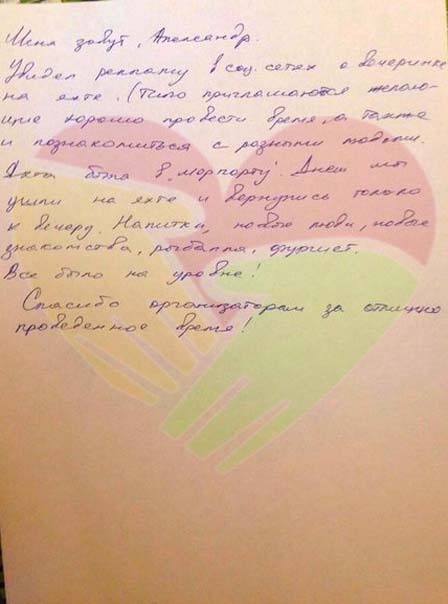 Меня зовут, Александр.
Увидел рекламу в соц. сетях о вечеринке
на яхте. (Типо приглашаются желаю-
щие хорошо провести время, а также
и познакомиться с разными людьми.
Яхта была в "морпорту". Днем мы
ушли на яхте и вернулись только
к вечеру. Напитки, новые люди, новые
знакомства, рыбалка, фуршет.
Все было на уровне!
Спасибо организаторам за отлично
проведенное время!